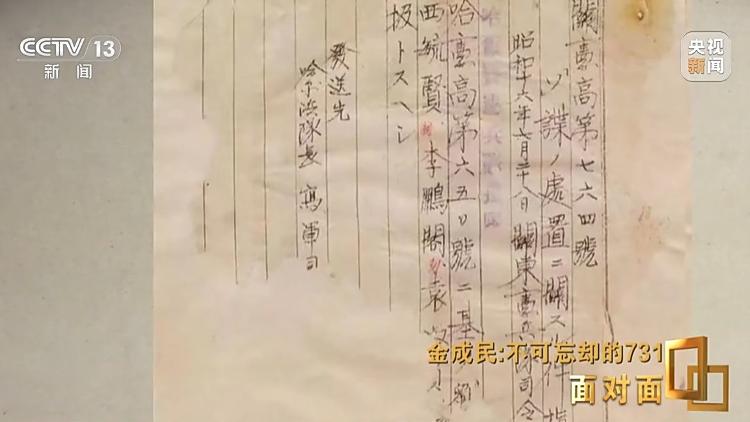 CCTV 13
新闻
央视
新闻
關憲高第七六四號
ソ諜ノ處置ニ關スル件指
昭和十六年七月二十八日 關東憲兵隊司令
哈憲高第六五〇號ニ基
西毓賢 李鵬閣 袁
扱トスヘシ
發送先
哈爾濱隊長 寫 軍司
金成民:不可忘却的731
面对面